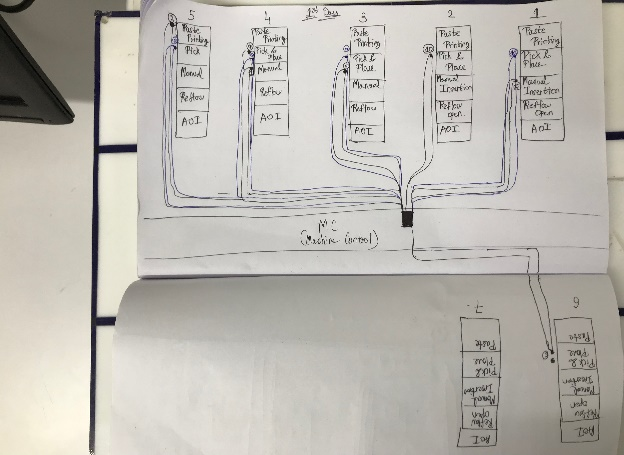 1st Day
5
Paste
Printing
Pick
Manual
Reflow
AOI
4
Paste
Printing
Pick &
Place
Manual
Reflow
AOI
3
Paste
Printing
Pick &
Place
Manual
Reflow
AOI
2
Paste
Printing
Pick &
Place
Manual
Insertion
Reflow
open
AOI
1
Paste
Printing
Pick &
Place
Manual
Insertion
Reflow
open
AOI
MC
(Machine Control)
7
Paste
Pick &
Place
Manual
Insertion
Reflow
open
AOI
6
Paste
Pick &
Place
Manual
Insertion
Reflow
open
AOI